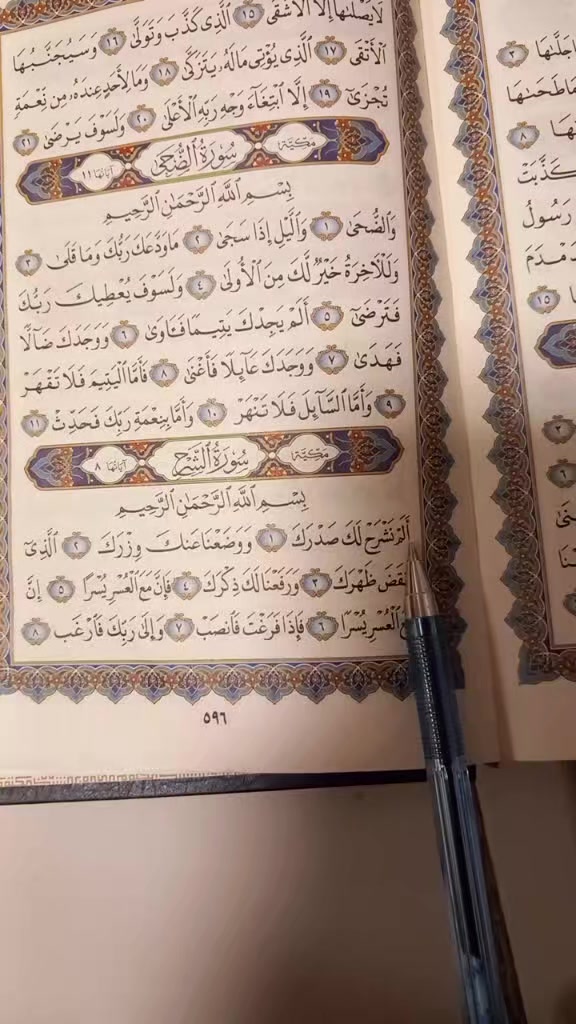 لَا يَصْلَىٰهَآ إِلَّا ٱلْأَشْقَى ١٥ ٱلَّذِى كَذَّبَ وَتَوَلَّىٰ ١٦ وَسَيُجَنَّبُهَا
ٱلْأَتْقَى ١٧ ٱلَّذِى يُؤْتِى مَالَهُۥ يَتَزَكَّىٰ ١٨ وَمَا لِأَحَدٍ عِندَهُۥ مِن نِّعْمَةٍ
تُجْزَىٰٓ ١٩ إِلَّا ٱبْتِغَآءَ وَجْهِ رَبِّهِ ٱلْأَعْلَىٰ ٢٠ وَلَسَوْفَ يَرْضَىٰ ٢١
مَكِّيَّة سُورَةُ الضُّحَىٰ آيَاتُهَا ١١
بِسْمِ ٱللَّهِ ٱلرَّحْمَٰنِ ٱلرَّحِيمِ
وَٱلضُّحَىٰ ١ وَٱلَّيْلِ إِذَا سَجَىٰ ٢ مَا وَدَّعَكَ رَبُّكَ وَمَا قَلَىٰ ٣
وَلَلْآخِرَةُ خَيْرٌ لَّكَ مِنَ ٱلْأُولَىٰ ٤ وَلَسَوْفَ يُعْطِيكَ رَبُّكَ
فَتَرْضَىٰٓ ٥ أَلَمْ يَجِدْكَ يَتِيمًا فَـَٔاوَىٰ ٦ وَوَجَدَكَ ضَآلًّا
فَهَدَىٰ ٧ وَوَجَدَكَ عَآئِلًا فَأَغْنَىٰ ٨ فَأَمَّا ٱلْيَتِيمَ فَلَا تَقْهَرْ
٩ وَأَمَّا ٱلسَّآئِلَ فَلَا تَنْهَرْ ١٠ وَأَمَّا بِنِعْمَةِ رَبِّكَ فَحَدِّثْ ١١
مَكِّيَّة سُورَةُ الشَّرْحِ آيَاتُهَا ٨
بِسْمِ ٱللَّهِ ٱلرَّحْمَٰنِ ٱلرَّحِيمِ
أَلَمْ نَشْرَحْ لَكَ صَدْرَكَ ١ وَوَضَعْنَا عَنكَ وِزْرَكَ ٢ ٱلَّذِىٓ
ظَهْرَكَ ٣ وَرَفَعْنَا لَكَ ذِكْرَكَ ٤ فَإِنَّ مَعَ ٱلْعُسْرِ يُسْرًا ٥ إِنَّ
ٱلْعُسْرِ يُسْرًا ٦ فَإِذَا فَرَغْتَ فَٱنصَبْ ٧ وَإِلَىٰ رَبِّكَ فَٱرْغَب ٨
٥٩٦
كَذَّبَتْ
رَسُولُ
١٥